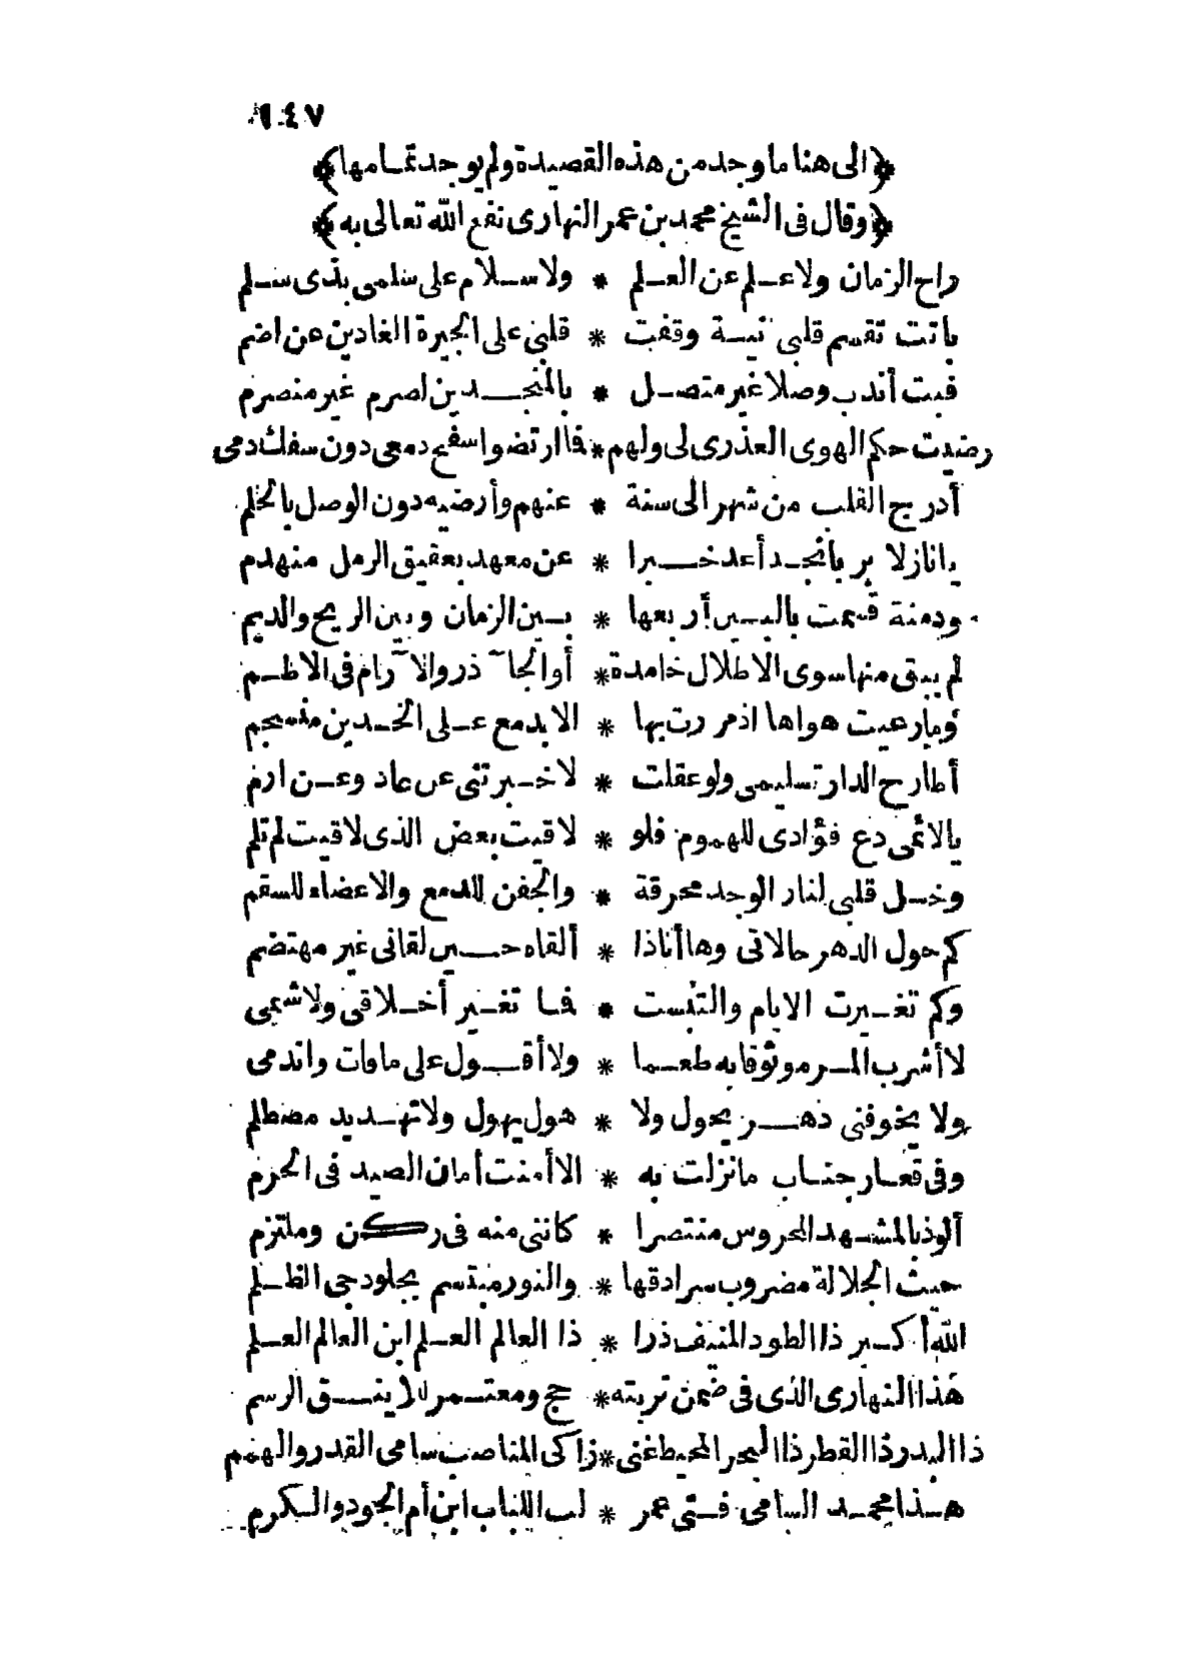 ١٤٧
﴿الى هنا ما وجد من هذه القصيدة ولم يوجد تمامها﴾
﴿وقال فى الشيخ محمد بن عمر النهارى نفع الله تعالى به﴾
راح الزمان ولا علم عن العلم * ولا سلام على سلمى بذى سلم
باتت تقسم قلبى نية وقفت * قلبى على الجيرة الغادين عن اضم
فبت أندب وصلا غير متصل * بالمنجدين لصرم غير منصرم
رضيت حكم الهوى العذرى لى ولهم * فا ارتضوا سفح دمعى دون سفك دمى
أدرج القلب من شهر الى سنة * عنهم وأرضيه دون الوصل بالحلم
يانازلا بر بانجد أعد خبرا * عن معهد بعقيق الرمل منهدم
ودمنة قسمت بالبين أربعها * بين الزمان وبين الريح والديم
لم يبق منها سوى الاطلال خامدة * أو الجآذر والآرام فى الاطم
وما رعيت هواها اذ مررت بها * الا بدمع على الخدين منسجم
أطارح الدار تسليمى ولو عقلت * لاخبرتنى عن عاد وعن ارم
يالائمى دع فؤادى للهموم فلو * لاقيت بعض الذى لاقيت لم تلم
وخل قلبى لنار الوجد محرقة * والجفن للدمع والاعضاء للسقم
كم حول الدهر حالاتى وها أناذا * ألقاه حين لقانى غير مهتضم
وكم تغيرت الايام والتبست * فما تغير أخلاقى ولا شيمى
لا أشرب المر موثوقا به طعما * ولا أقول على مافات واندمى
ولا يخوفنى دهر يحول ولا * هول يهول ولا تهديد مصطلم
وفى قعار جناب مانزلت به * الا أمنت أمان الصيد فى الحرم
ألوذ بالمشهد المحروس منتصرا * كاننى منه فى ركن وملتزم
حيث الجلالة مضروب سرادقها * والنور مبتسم يجلو دجى الظلم
الله أكبر ذا الطود المنيف ذرا * ذا العالم العلم ابن العالم العلم
هذا النهارى الذى فى ضمن تربته * حج ومعتمر للاينق الرسم
ذا البدر ذا القطر ذا البحر المحيط غنى * زاكى المناصب سامى القدر والهمم
هذا محمد السامى فتى عمر * لب اللباب ابن أم الجود والكرم